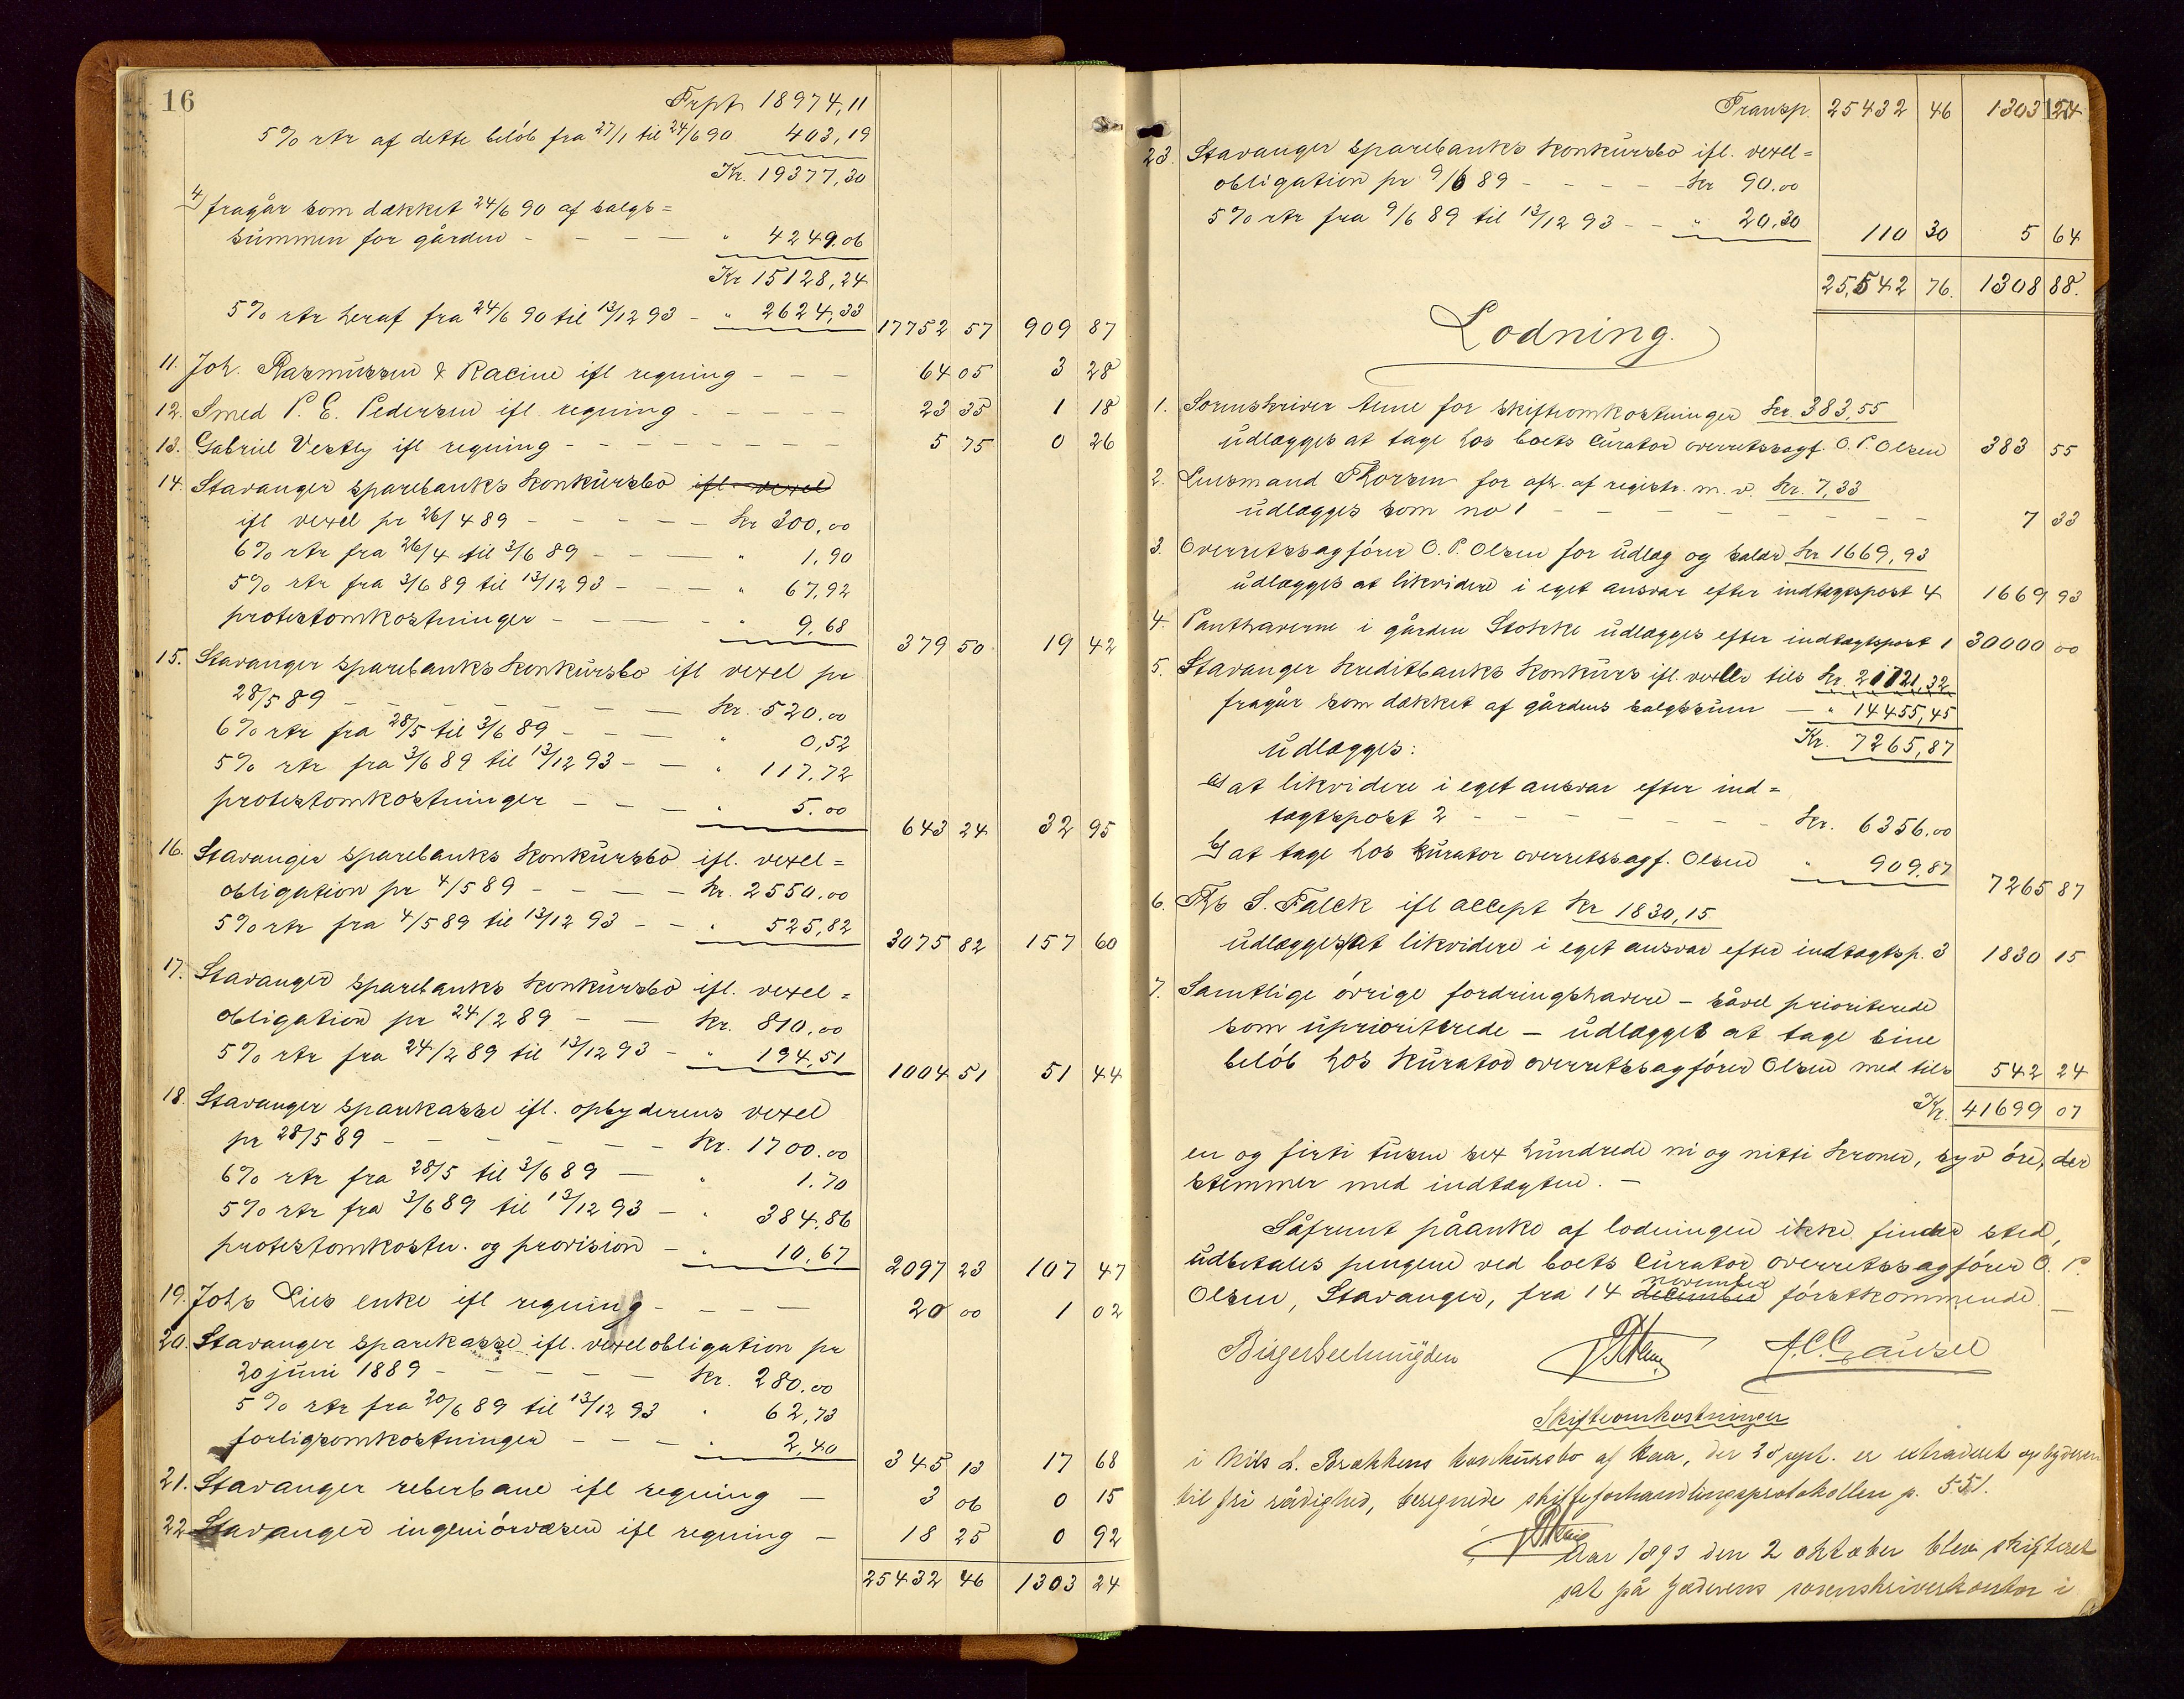 16
Frpt 18974,11
5% rtr af dette beløb fra 27/1 til 24/6 90 403,19
Kr. 19377,30
4/ fragår som dækket 24/6 90 af salgs=
summen for gården - - - - " 4249.06
Kr 15128,24
5% rtr heraf fra 24/6 90 til 13/12 93 - " 2624,33 17752 57 909 87
11. Joh. Rasmussen & Racine ifl regning - - - 64 05 3 28
12. Smed P. E. Pedersen ifl. regning - - - - - 23 35 1 18
13. Gabriel Vestly ifl regning - - - - - - - 5 75 0 26
14. Stavanger sparebanks konkursbo ifl vexel
ifl vexel pr 26/4 89 - - - - - Kr 300,00
6% rtr fra 26/4 til 3/6 89 - - - " 1,90
5% rtr fra 3/6 89 til 13/12 93 - - - " 67,92
protestomkostninger - - - - " 9,68 379 50 19 42
15. Stavanger sparebanks konkursbo ifl vexel pr
28/5 89 - - - - - - Kr. 520.00
6% rtr fra 28/5 til 3/6 89 - - - " 0,52
5% rtr fra 3/6 89 til 13/12 93 - - " 117,72
protestomkostninger - - - " 5.00 643 24 32 95
16. Stavanger sparebanks konkursbo ifl. vexel=
obligation pr 4/5 89 - - - - Kr. 2550.00
5% rtr fra 4/5 89 til 13/12 93 - - " 525,82 3075 82 157 60
17. Stavanger sparebanks konkursbo ifl. vexel=
obligation pr 24/2 89 - - Kr. 810.00
5% rtr fra 24/2 89 til 13/12 93 - " 194,51 1004 51 51 44
18. Stavanger sparekasse ifl. opbyderens vexel
pr 28/5 89 - - - - - - Kr. 1700.00
6% rtr fra 28/5 til 3/6 89 - " 1.70
5% rtr fra 3/6 89 til 13/12 93 - " 384,86
protestomkostn. og provision - " 10,67 2097 23 107 47
19. Johs Lies enke ifl regning - - - - 20 00 1 02
20. Stavanger sparekasse ifl. vexelobligation pr
20 juni 1889 - - - - - Kr. 280.00
5% rtr fra 20/6 89 til 13/12 93 " 62,73
forligsomkostninger - - - " 2,40 345 13 17 68
21. Stavanger reberbane ifl regning - 3 06 0 15
22 Stavanger ingeniørvæsen ifl regning - 18 25 0 92
25432 46 1303 24
Transp. 25432 46 1303 24
23. Stavanger sparebanks konkursbo ifl. vexel=
obligation pr 9/6 89 - - - - Kr 90.00
5% rtr fra 9/6 89 til 13/12 93 - - " 20,30 110 30 5 64
25,542 76. 1308 88.
Lodning.
1. Sorenskriver Aune for skifteomkostninger Kr. 383,55
udlægges at tage hos boets curator overretssagf. O. P. Olsen 383 55
2. Lensmand Thorsen for afh. af registr. m. v. Kr. 7,33
udlægges som no 1 - - - - - - - 7 33
3. Overretssagfører O. P. Olsen for udlæg og salær Kr 1669,93
udlægges at likvidere i eget ansvar efter indtægtspost 4 1669 93
4. Panthaverne i gården Stokke udlægges efter indtægtspost 1 30000 00
5. Stavanger Kreditbanks konkurs ifl. vexlr tils Kr. 21721,32
fragår som dækket af gårdens salgssum - " 14455,45
udlægges: Kr. 7265,87
a) at likvidere i eget ansvar efter ind=
tægtspost 2 - - - - - - - Kr. 6356.00
b) at tage hos kurator overretssagf. Olsen " 909,87 7265 87
6. Ths S. Falck ifl accept Kr 1830,15
udlægges at likvidere i eget ansvar efter indtægtsp. 3 1830 15
7. Samtlige øvrige fordringshavere - såvel prioriterede
som uprioriterede - udlægges at tage sine
beløb hos kurator overretssagfører Olsen med tils 542 24
Kr. 41699 07
en og firti tusen sex hundrede ni og nitti kroner, syv øre, der
stemmer med indtægten. -
Såfremt påanke af lodningen ikke finder sted,
udbetales pengene ved boets curator overretssagfører O. P.
november
Olsen, Stavanger, fra 14 december førstkommende. -
A. C. Gausel
Skifteomkostninger
i Nils L. Brækkens konkursbo af Kaa, der 28 sept. er extraderet opbyderen
til fri rådighed, beregnede skifteforhandlingsprotokollen p. 551.
Aar 1893 den 2 oktober blev skifteret
sat på Jæderens sorenskriverkontor i